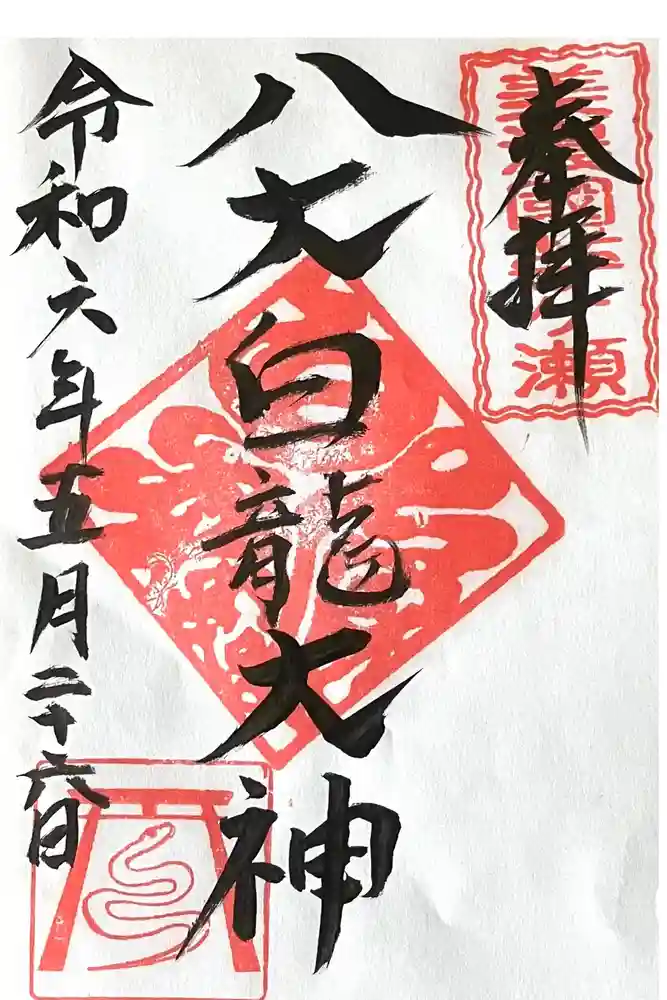 奉拝
八大白龍大神
令和六年五月二十六日